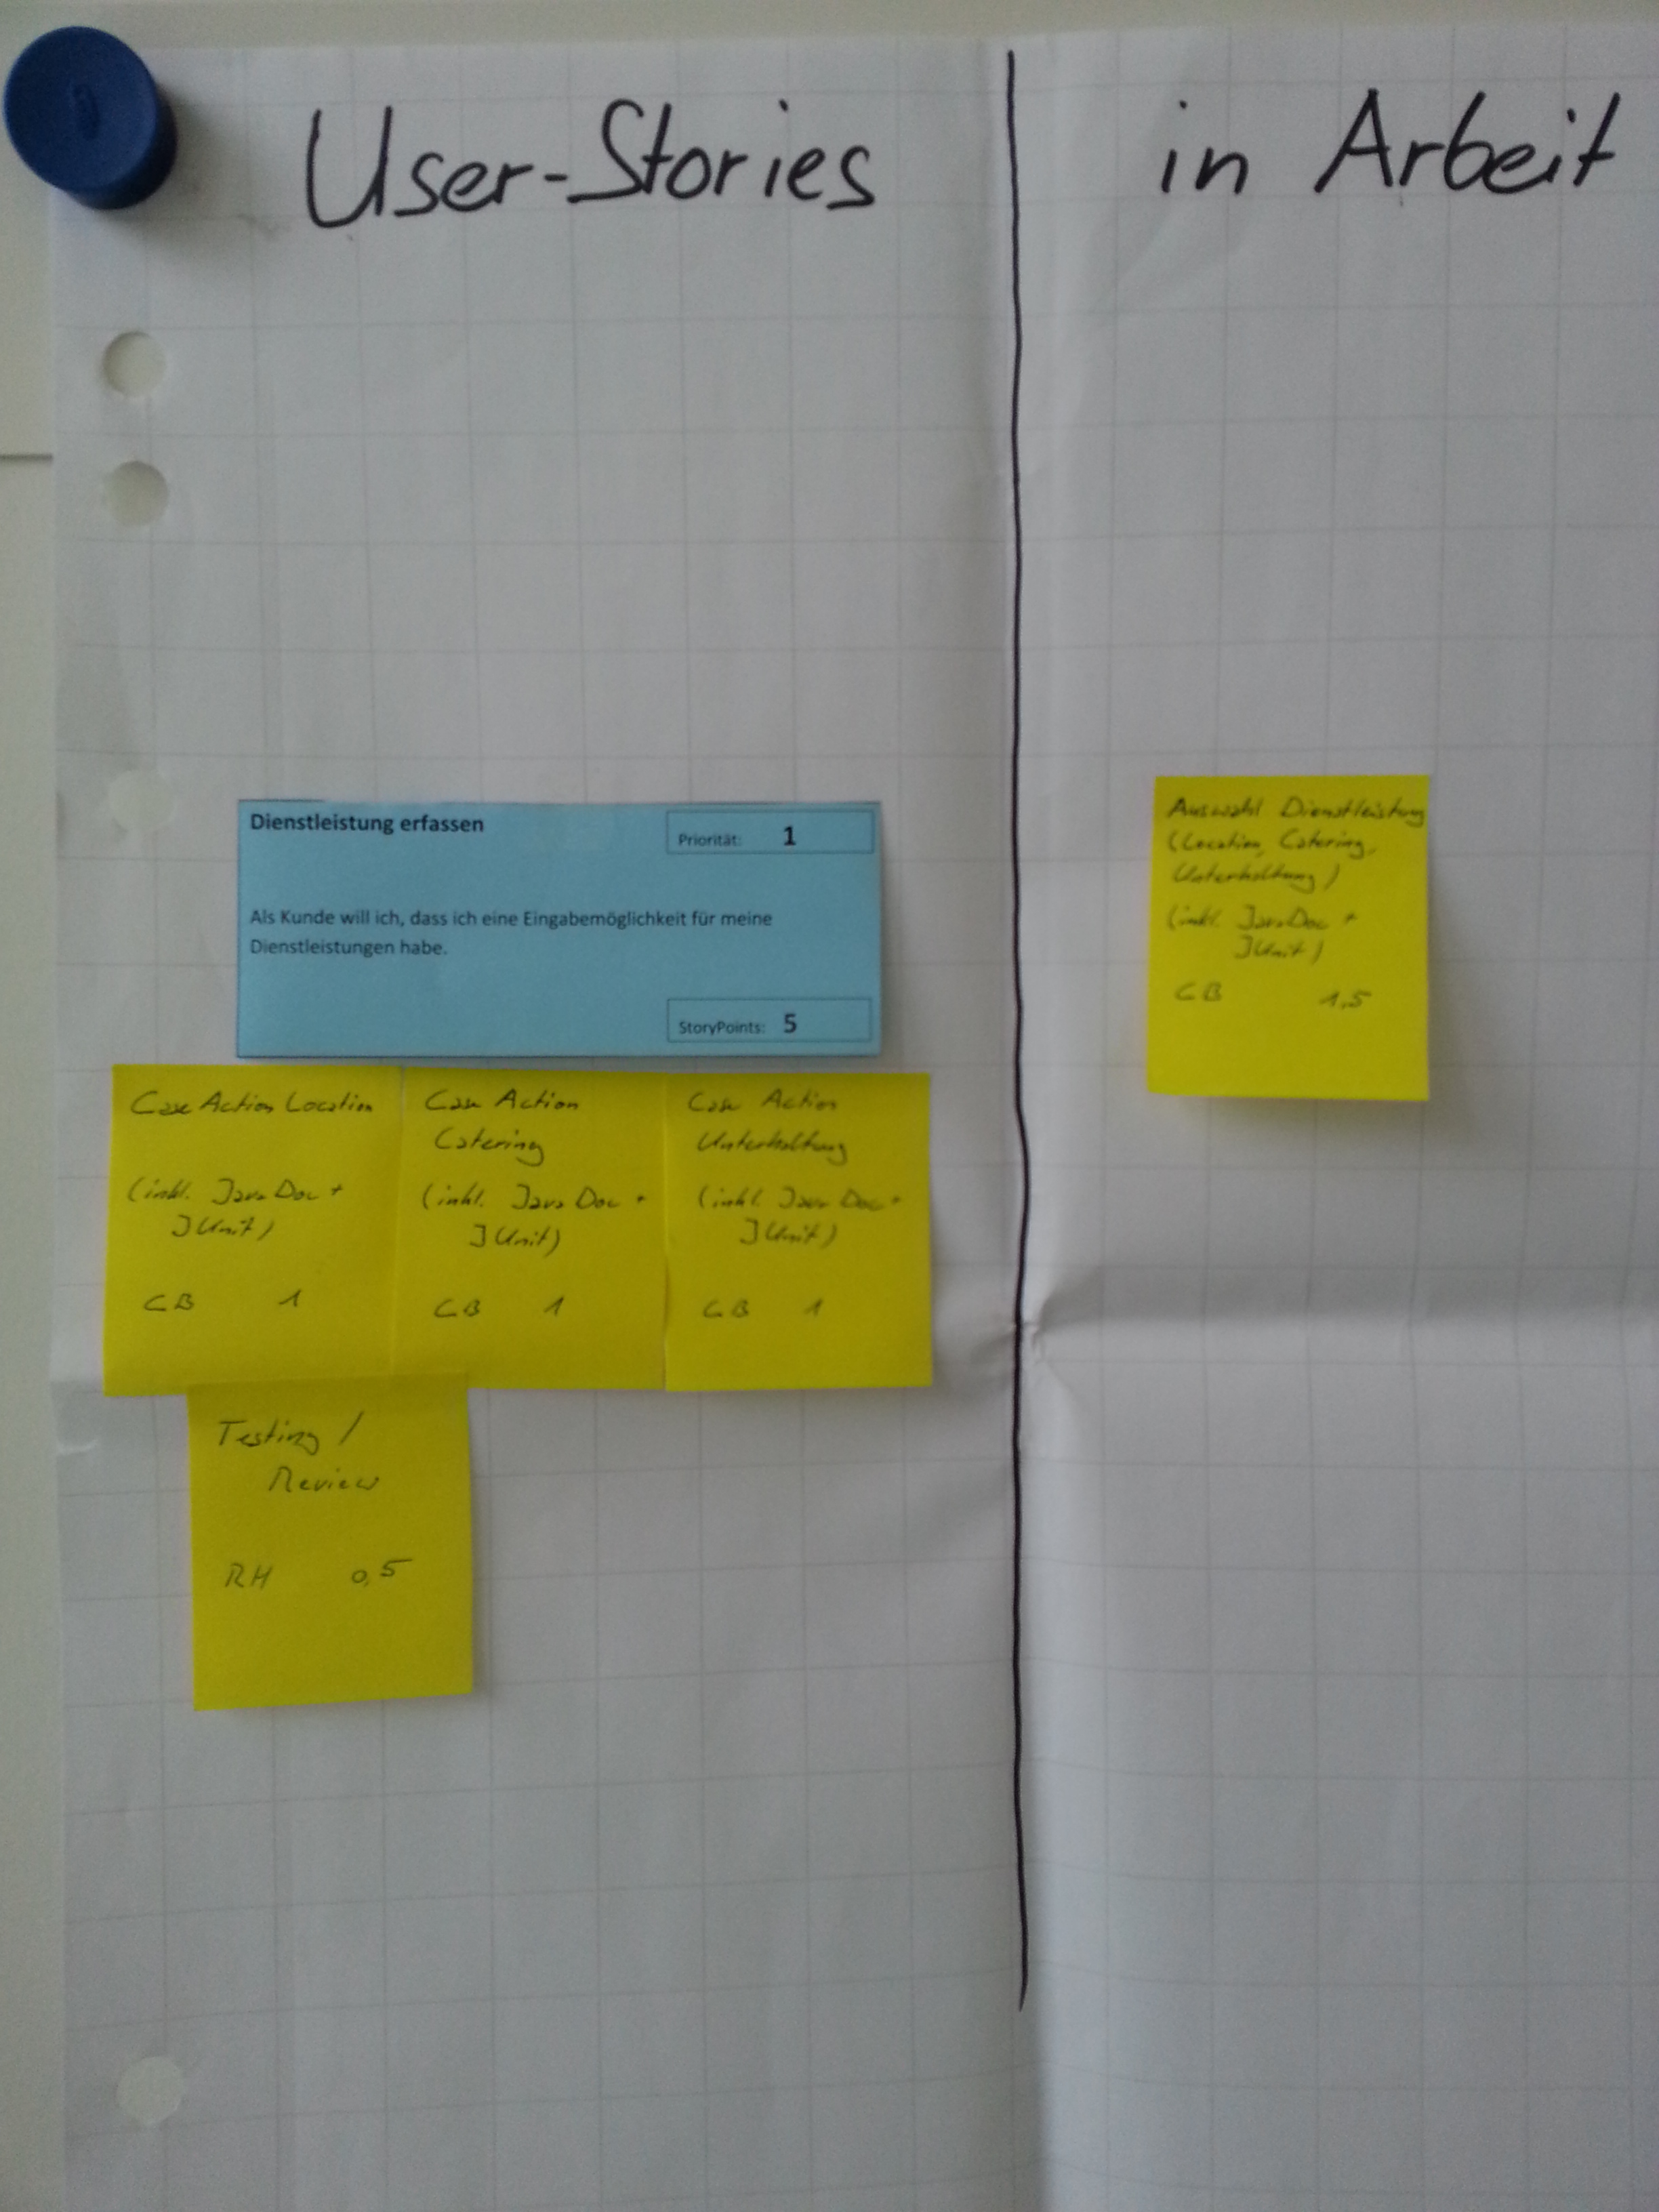 User-Stories
in Arbeit
Dienstleistung erfassen
Priorität: 1
Als Kunde will ich, dass ich eine Eingabemöglichkeit für meine
Dienstleistungen habe.
StoryPoints: 5
Case Action Location
(inkl. JavaDoc +
JUnit)
CB 1
Case Action
Catering
(inkl. JavaDoc +
JUnit)
CB 1
Case Action
Unterhaltung
(inkl. JavaDoc +
JUnit)
CB 1
Testing /
Review
RH 0,5
Auswahl Dienstleistung
(Location, Catering,
Unterhaltung)
(inkl. JavaDoc +
JUnit)
CB 1,5